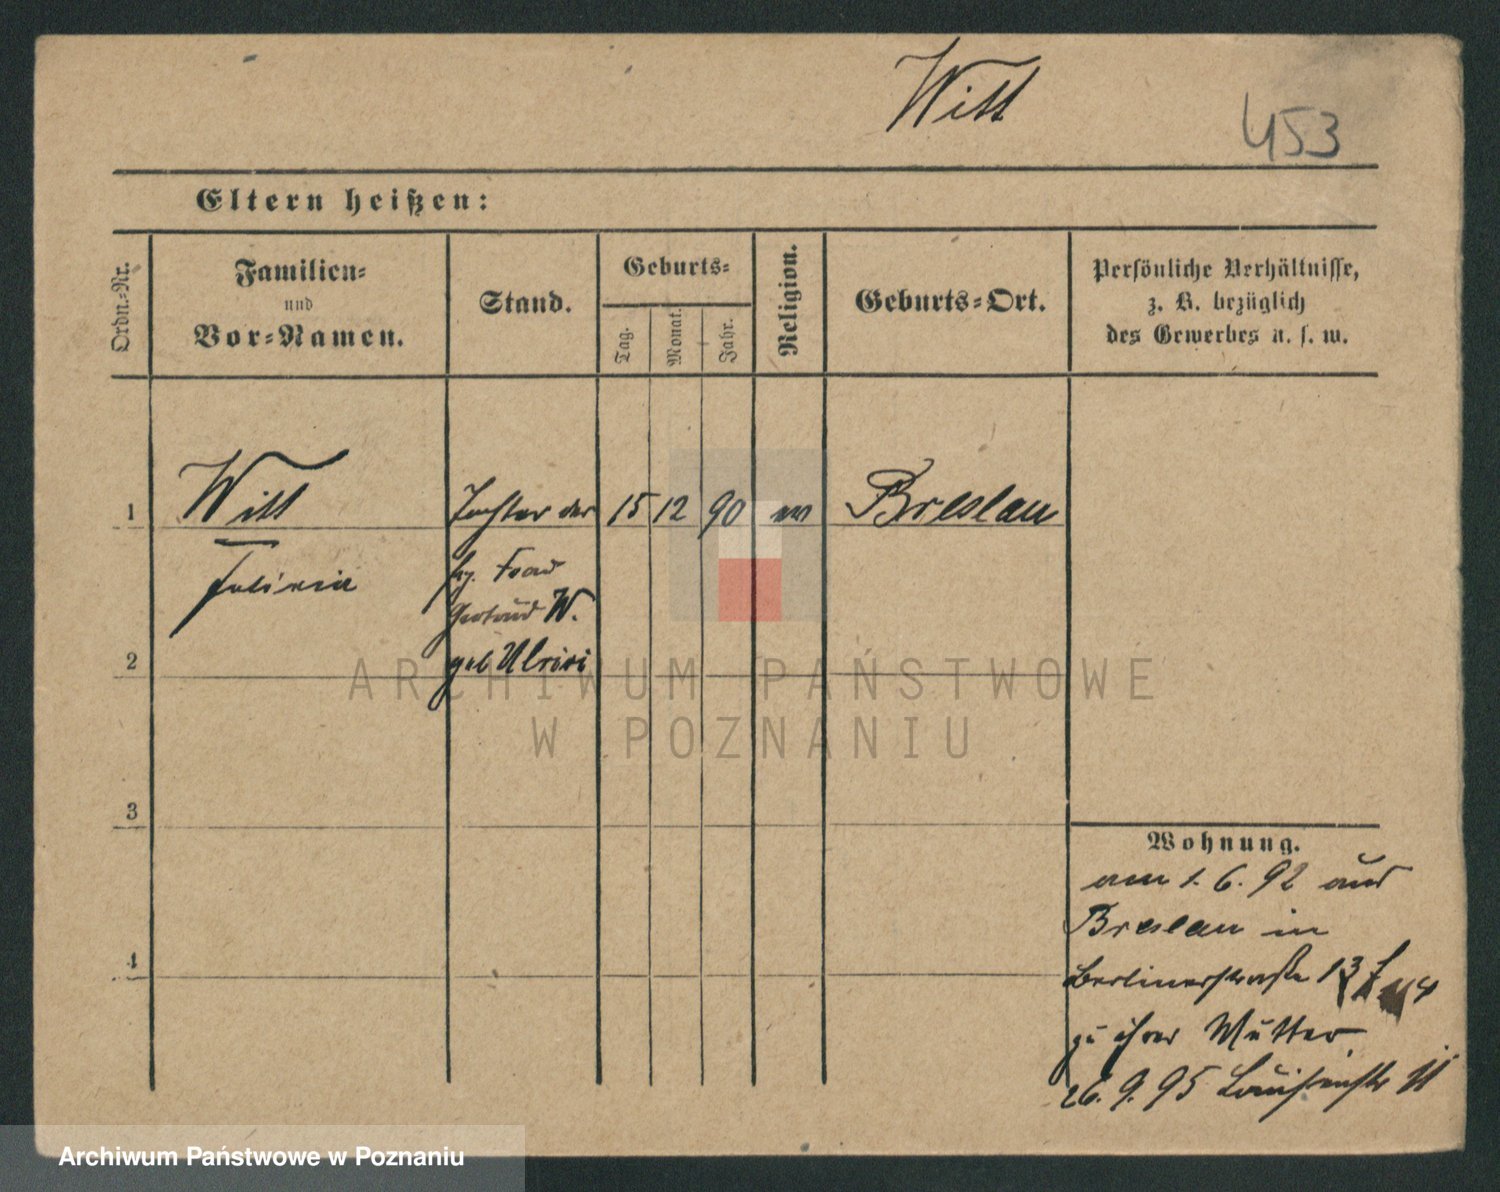 Witt
453
Eltern heißen:
Ordn.-Nr.
Familien-
und
Vor-Namen.
Stand.
Geburts-
Tag.
Monat.
Jahr.
Religion.
Geburts-Ort.
Persönliche Verhältnisse,
z. B. bezüglich
des Gewerbes u. s. w.
1 Witt Tochter der 15 12 90 ev Breslau
Felicia
Frau
Gertrud W.
2 geb. Ulrici
3
4
Wohnung.
am 1. 6. 92 aus
Breslau in
Berlinerstraße 13
zu ihrer Mutter
26. 9. 95 Louisenstr
ARCHIWUM PAŃSTWOWE
W POZNANIU
Archiwum Państwowe w Poznaniu